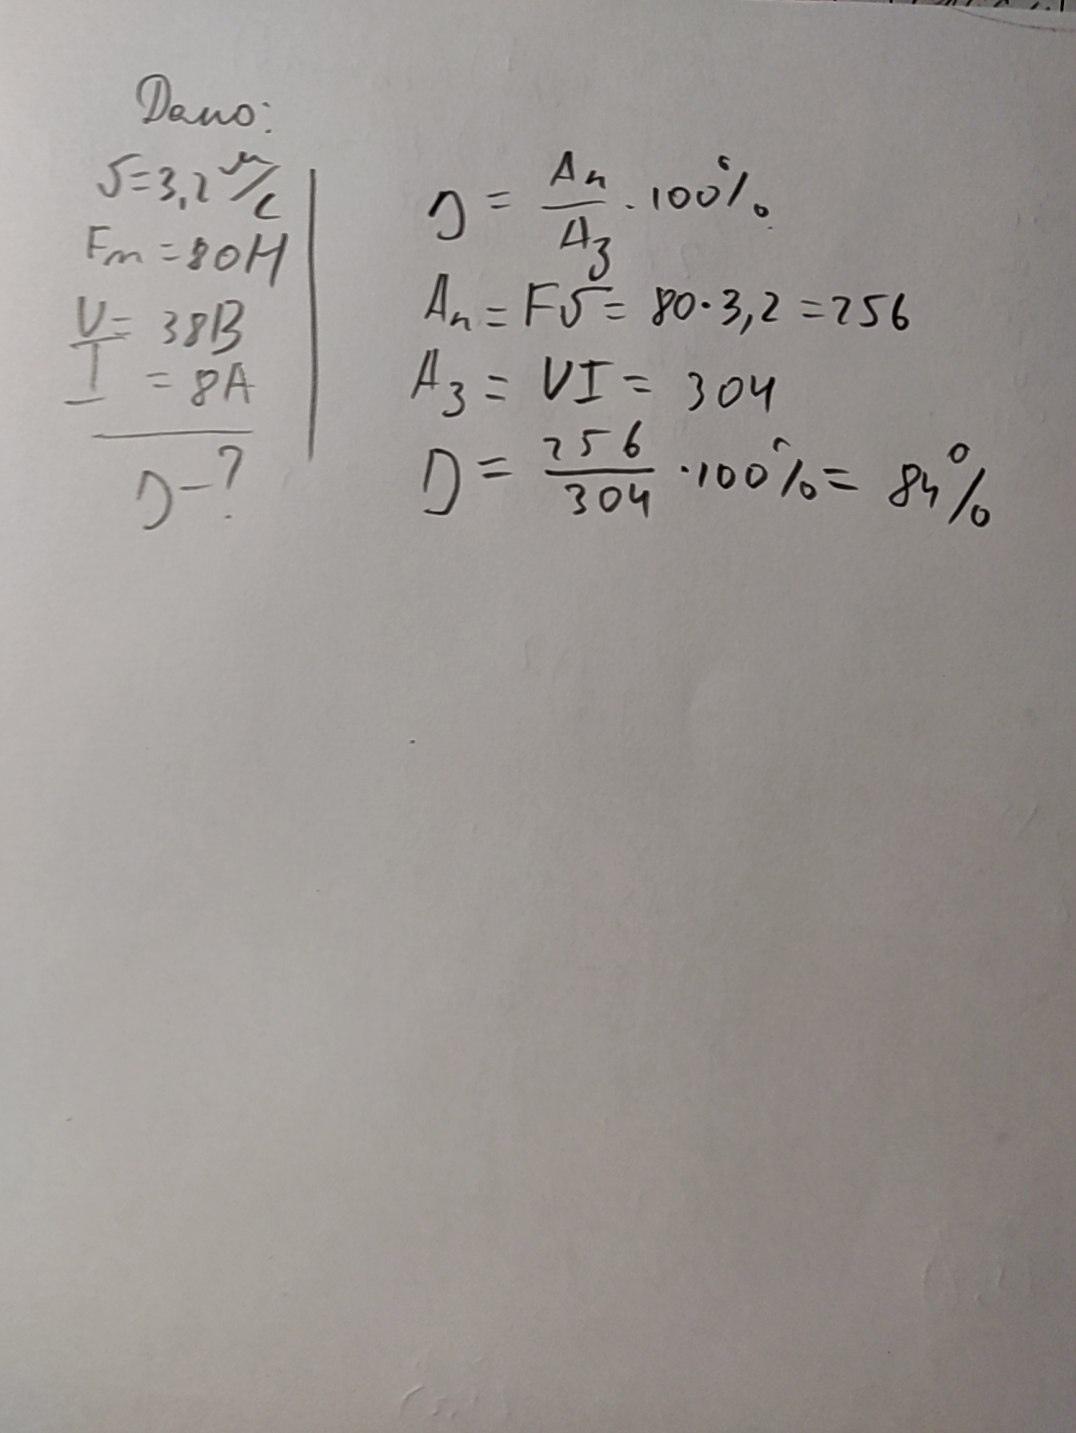 Дано:
υ=3,2 м/с
Fт = 80Н
U = 38В
I = 8А
η - ?
η = Aп/Aз · 100%
Aп = Fυ = 80·3,2 = 256
Aз = UI = 304
η = 256/304 · 100% = 84%